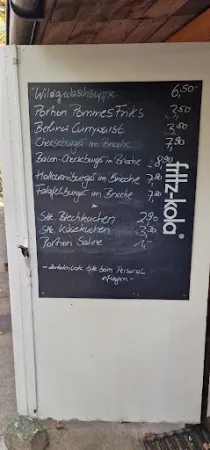 Wildgulaschsuppe 6,50
Portion Pommes Frites 3,50
Berliner Currywurst 3,50
Cheeseburger im Brioche 7,90
Bacon-Cheeseburger im Brioche 8,90
Halloumiburger im Brioche 7,90
Falafelburger im Brioche 7,90
Stk. Blechkuchen 2,90
Stk. Käsekuchen 3,90
Portion Sahne 1,-
fritz-kola
bitte beim Personal
erfragen -